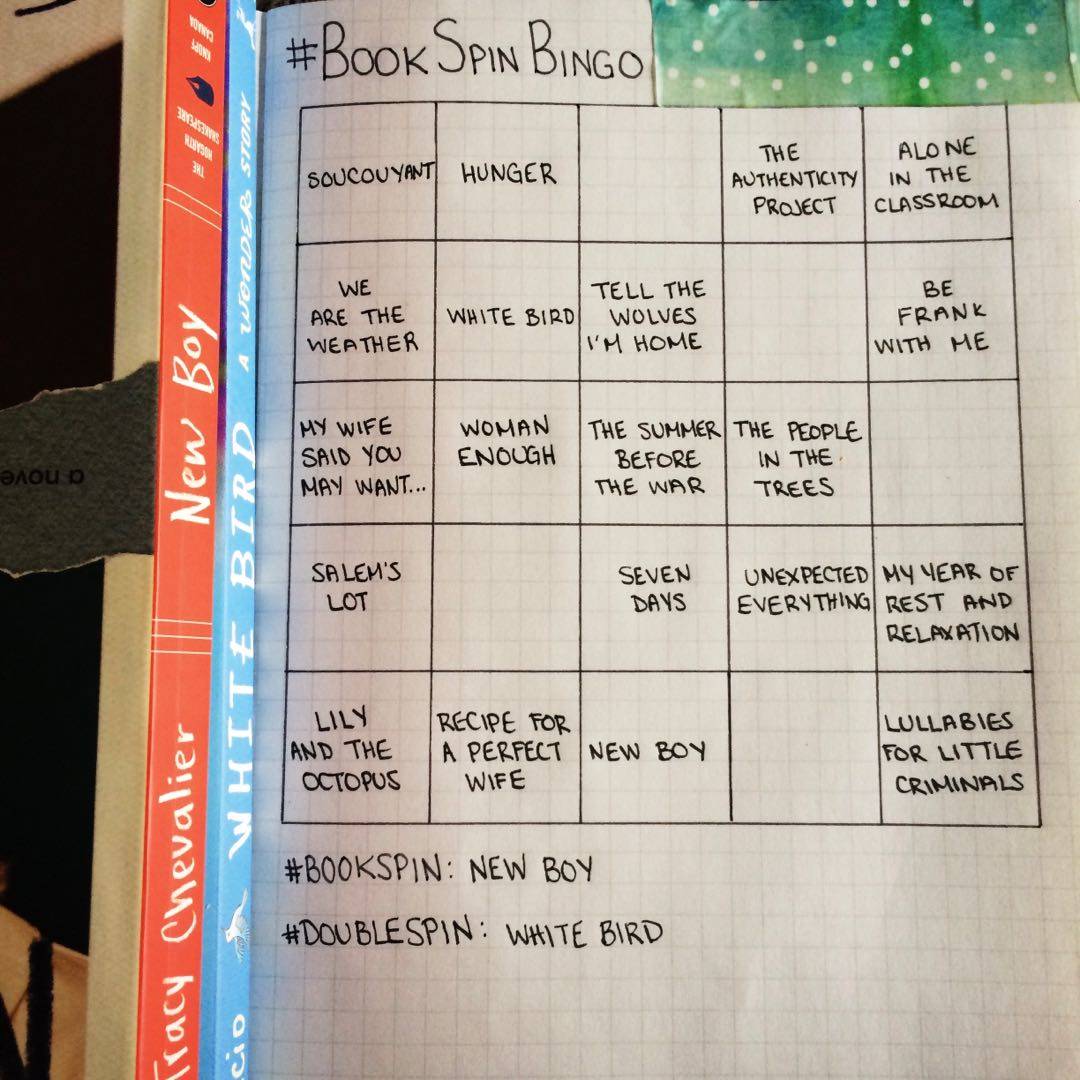 #BOOK SPIN BINGO
SOUCOUYANT
HUNGER
THE
AUTHENTICITY
PROJECT
ALONE
IN THE
CLASSROOM
WE
ARE THE
WEATHER
WHITE BIRD
TELL THE
WOLVES
I'M HOME
BE
FRANK
WITH ME
MY WIFE
SAID YOU
MAY WANT...
WOMAN
ENOUGH
THE SUMMER
BEFORE
THE WAR
THE PEOPLE
IN THE
TREES
SALEM'S
LOT
SEVEN
DAYS
UNEXPECTED
EVERYTHING
MY YEAR OF
REST AND
RELAXATION
LILY
AND THE
OCTOPUS
RECIPE FOR
A PERFECT
WIFE
NEW BOY
LULLABIES
FOR LITTLE
CRIMINALS
#BOOKSPIN: NEW BOY
#DOUBLESPIN: WHITE BIRD
Tracy Chevalier New Boy
THE
HOGARTH
SHAKESPEARE
KNOPF
CANADA
cio WHITE BIRD A WONDER STORY
a nove